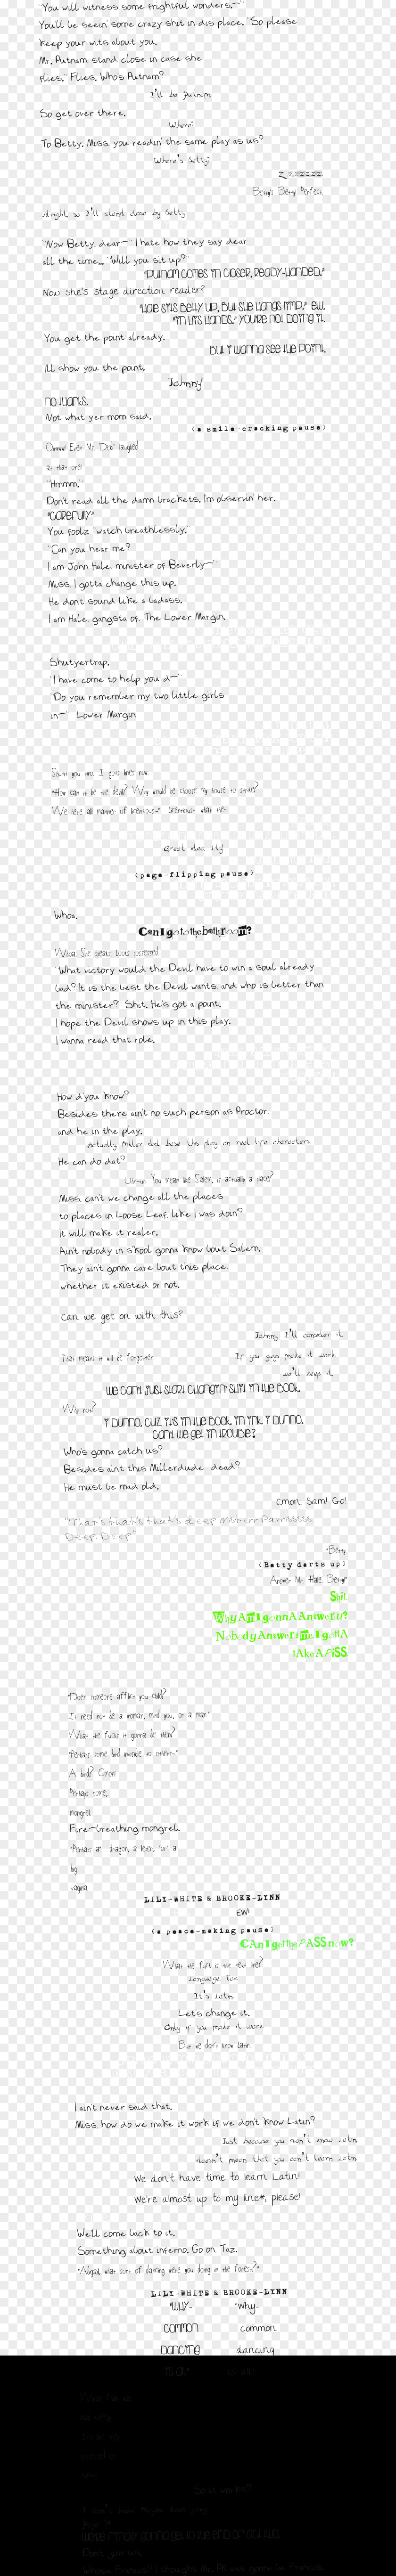 "You will witness some frightful wonders.—"
You'll be seein' some crazy shit in dis place. "So please
keep your wits about you.
Mr. Putnam stand close in case she
flies." Flies. Who's Putnam?
I'll be Putnam
So get over there.
Where?
To Betty. Miss, you readin' the same play as us?
Where's Betty?
Zzzzzzz
Betty's Being Perfect
Alright, so I'll stand close by Betty
"Now Betty, dear—" I hate how they say dear
all the time... "Will you sit up?"
"Putnam comes in closer, ready-handed."
Now she's stage direction reader?
"Hale sits Betty up, but she hangs limp." Ew.
"In his hands." You're not doing it.
You get the point already.
But I wanna see the point.
I'll show you the point.
Johnny!
No thanks.
Not what yer mom said.
(a smile-cracking pause)
Even Mr. Deb' laughed
at that one!
"Hmmm."
Don't read all the damn brackets. I'm observin' her.
"Carefully"
You foolz "watch breathlessly."
"Can you hear me?
I am John Hale, minister of Beverly—"
Miss, I gotta change this up.
He don't sound like a badass.
I am Hale, gangsta of. The Lower Margin.
Shutyertrap.
"I have come to help you d—"
"Do you remember my two little girls
in—" Lower Margin
I gots lines now.
"How can it be the devil? Why would he choose my house to strike?
We here all manner of licentious—" Licentious- what the-
(page-flipping pause)
Whoa.
Can I go to the bathroom?
Whoa. She speaks. Looks possessed.
"What victory would the Devil have to win a soul already
bad? It is the best the Devil wants, and who is better than
the minister?" Shit. He's got a point.
I hope the Devil shows up in this play.
I wanna read that role.
How d'you know?
Besides there ain't no such person as Proctor.
and he in the play.
Actually Miller did base this play on real life characters
He can do dat?
You mean like Salem, is actually a place?
Miss, can't we change all the places
to places in Loose Leaf, like I was doin'?
It will make it realer.
Ain't nobody in s'kool gonna know 'bout Salem.
They ain't gonna care 'bout this place.
whether it existed or not.
Can we get on with this?
Johnny, I'll consider it
That means it will be forgotten
If you guys make it work
we'll keep it
We can't just start changin' shit in the book.
Why not?
I dunno. Cuz it's in the book. In ink. I dunno.
Can't we get in trouble?
Who's gonna catch us?
Besides ain't this Millerdude dead?
He must be mad old.
Cmon! Sam! Go!
Deep. Deep"
"Betty
(Betty darts up)
Answer Mr. Hale, Betty"
Shit.
Why Am I gonnA Answer it?
Nobody Answers me. I gottA
tAke A PiSS.
"Does someone afflict you child?
It need not be a woman, mind you, or a man."
What the fuck's it gonna be then?
"Perhaps some bird invisible to others—"
A bird? Cmon!
Perhaps some,
mongrel.
Fire-breathing mongrel.
"Perhaps a" dragon, a tiger, "or" a
big
vagina
LILY-WHITE & BROOKE-LYNN
EW!
(a peace-making pause)
CAn I get the PASS now?
What the fuck is the next line?
Language, Taz.
It's Latin
Let's change it.
Only if you make it work
But we don't know Latin.
I ain't never said that.
Miss, how do we make it work if we don't know Latin?
Just because you don't know Latin
doesn't mean that you can't learn Latin
We don't have time to learn Latin!
We're almost up to my line*, please!
We'll come back to it.
Something about inferno. Go on Taz.
"Abigail, what sort of dancing were you doing in the forest?"
LILY-WHITE & BROOKE-LYNN
"Why- "Why-
common common
dancing dancing
is all" is all"
So it works?